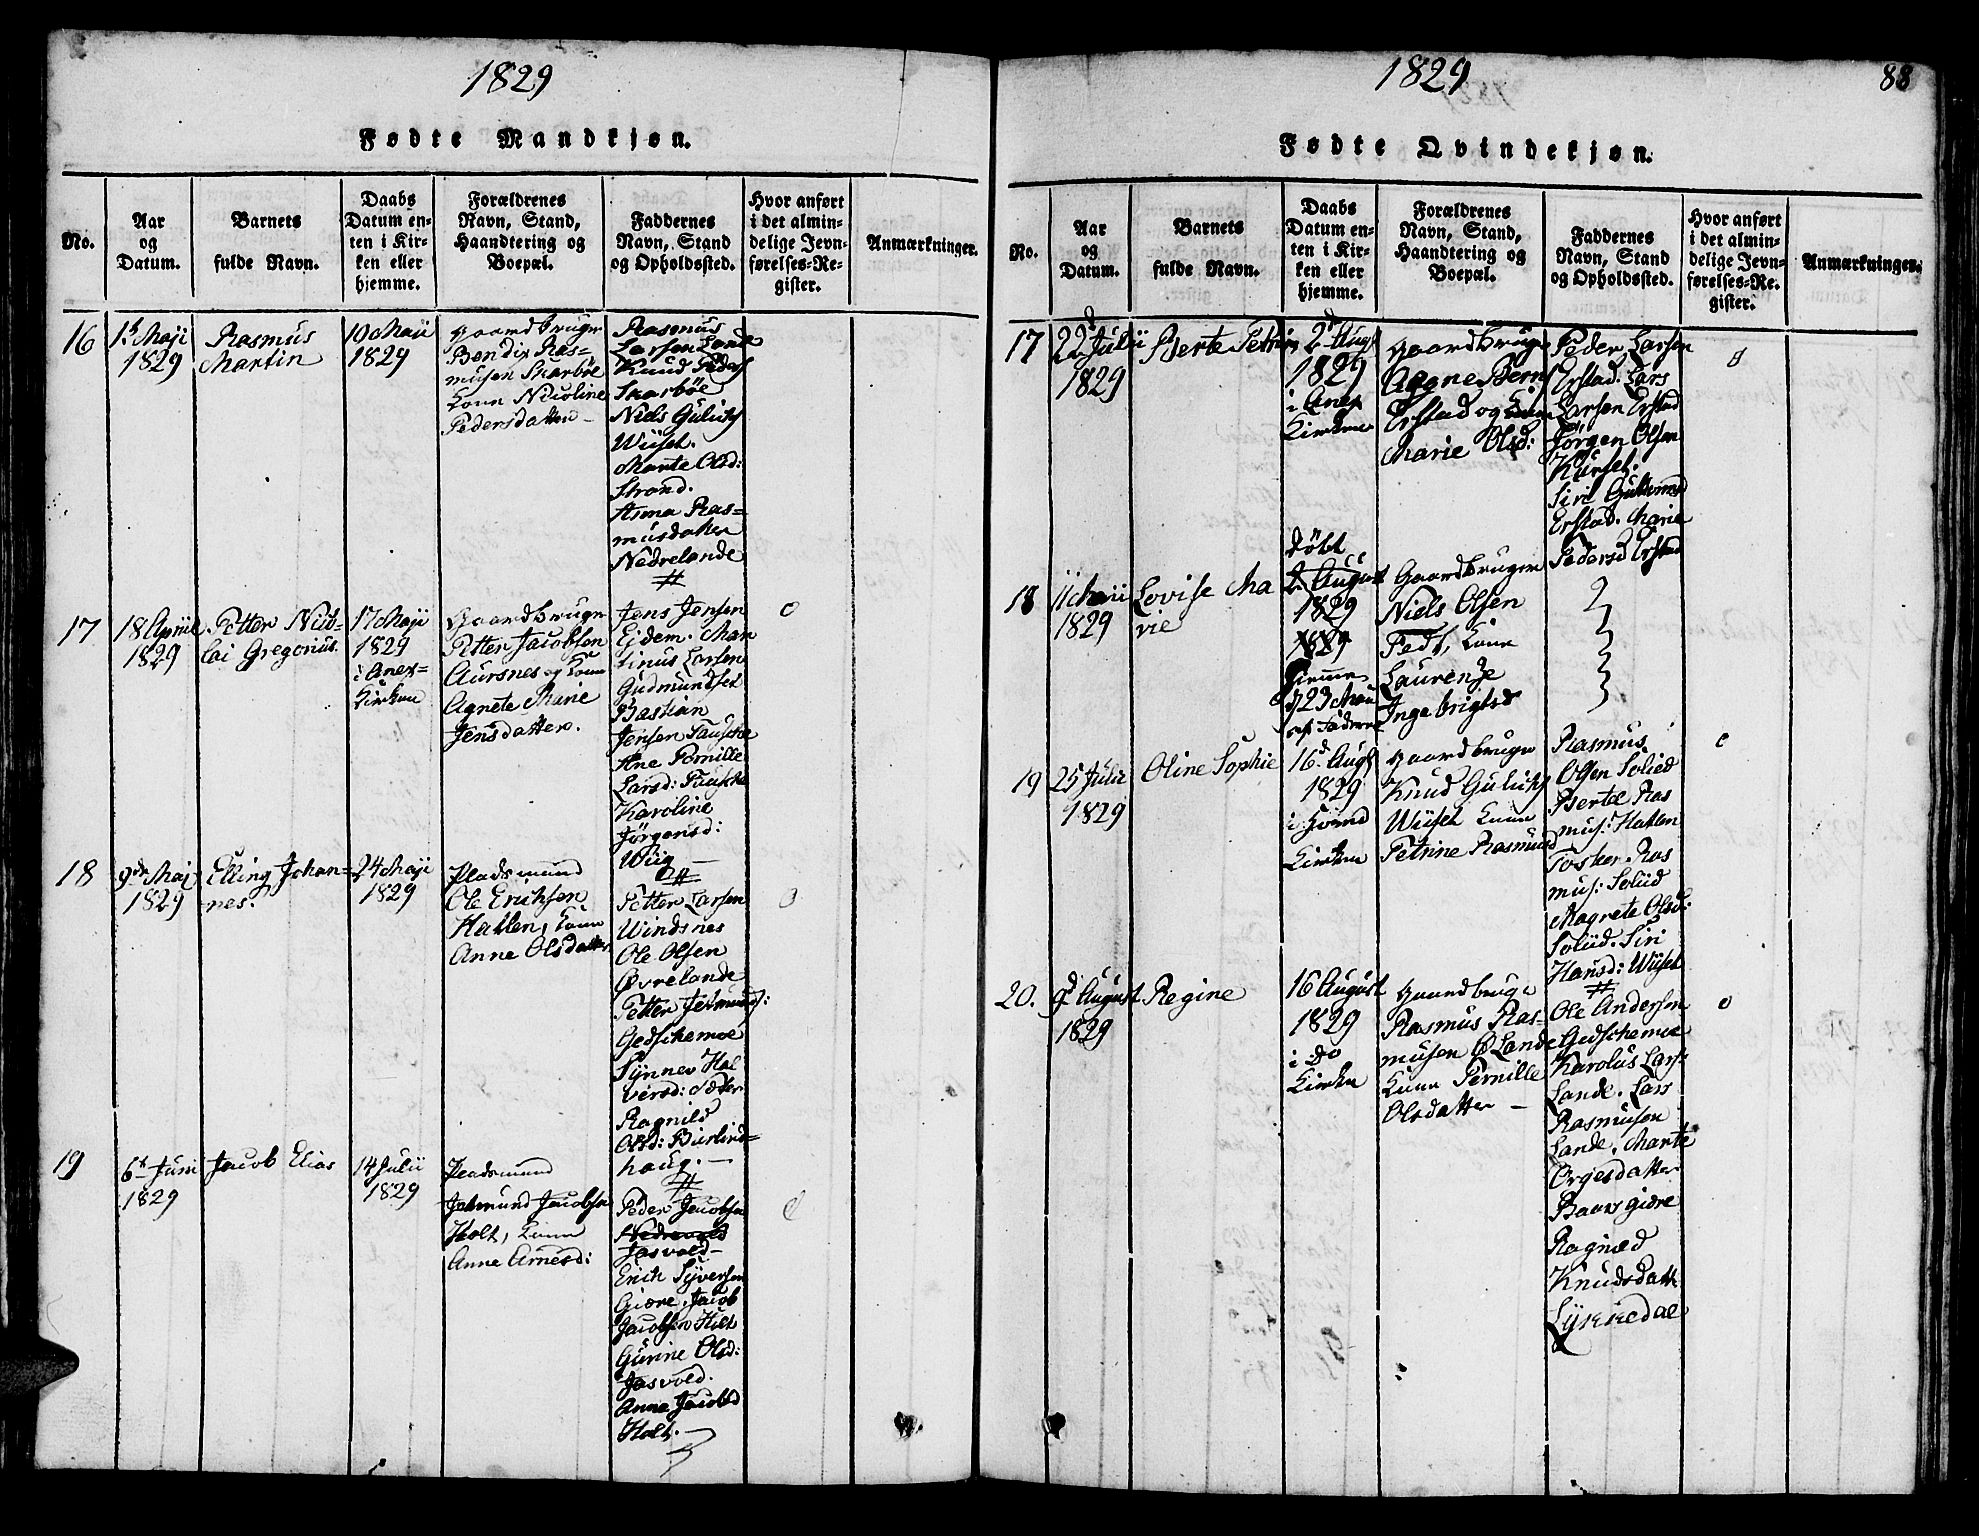 1829
Fødte Mandkjøn.
No.
Aar
og
Datum.
Barnets
fulde Navn.
Daabs
Datum en-
ten i Kir-
ken eller
hjemme.
Forældrenes
Navn, Stand,
Haandtering og
Boepæl.
Faddernes
Navn, Stand
og Opholdssted.
Hvor anført
i det almin-
delige Jevn-
førelses-Re-
gister.
Anmærkninger.
16
1t Maji
1829
Rasmus
Martin
10 Maii
1829
Gaardbruger
Bendix Ras=
musen Skarbøe
Kone Nicoline
Pedersdatter
Rasmus
Larsen Lande
Knud Peders
Skarbøe
Niels Guliks
Wiiset.
Marte Olsd:
Strand.
Asma Ras=
musdatter
Nedrelande
17
18 April
1829
Petter Nico=
lai Gregorius
17 Maji
1829
i Anex=
Kirken
Gaardbruger
Petter Jacobsen
Aursnes og Kone
Agnete Marie
Jensdatter.
Jens Jensen
Ejdem. Mar
tinus Larsen
Gudmundset
Bastian
Jensen Tausche
Ane Pernille
Larsd: Tausche
Karoline
Jörgensd:
Wiig
18
9de Maj
1829
Elling Johan=
nes.
24 Maji
1829
Pladsmand
Ole Erichsen
Hatlen, Kone
Anne Olsdatter
Petter Larsen
Windsnes
Ole Olsen
Øvrelande
Petter Jetmunds:
Gedschemoe
Synnev Hal
versd: Sæter
Ragnild
Olsd: Burlind=
haug.
19
6t Juni
1829
Jacob Elias
14 Julii
1829
Pladsmand
Jetmund Jacobsen
Holt, Kone
Anne Arnesd:
Peder Jacobsen
Jasvold
Erich Syversen
Giære Jacob
Jacobsen Holt
Gurine Olsd:
Jasvold.
Anne Jacobsd
Holt.
1829
88
Fødte Qvindekjøn.
No.
Aar
og
Datum.
Barnets
fulde Navn.
Daabs
Datum en-
ten i Kir-
ken eller
hjemme.
Forældrenes
Navn, Stand,
Haandtering og
Boepæl.
Faddernes
Navn, Stand
og Opholdssted.
Hvor anført
i det almin-
delige Jevn-
førelses-Re-
gister.
Anmærkninger.
17
22d Julii
1829
Berte Petrine
2d Augs
1829
i Anex
Kirken
Gaardbruger
Aagne Berns
Erstad og Kone
Marie Olsd:
Peder Larsen
Erstad. Lars
Larsen Erstad
Jörgen Olsen
Kurset.
Siri Guttormsd
Erstad. Marie
Pedersd Erstad
18
11 Maii
1829
Lovise Ma
rie
døbt
2. August
1829
1829
hjemme
d 23 Maii
af Faderen
Gaardbruger
Niels Olsen
Fedt, Kone
Laurenze
Ingebrigtsd
19
25 Julii
1829
Oline Sophie
16d. Augs
1829
i Hoved
Kirken
Gaardbruger
Knud Guliks
Wiiset Kone
Petrine Rasmusd
Rasmus
Olsen Solied
Bertel Ras
mus: Hatlen
Tosten Ras
mus: Soliid
Magrete Olsd:
Soliid. Siri
Hansd: Wiiset
20.
9d August
1829
Regine
16 August
1829
i do
Kirken
Gaardbruge
Rasmus Ras=
musen Ø Lande
Kone Pernille
Olsdatter
Ole Andersen
Gedschemoe
Karolus Lars:
Lande. Lars
Rasmusen
Lande. Marte
Orgesdatter
Baarsgiære
Ragnild
Knudsdatt
Lykkedal